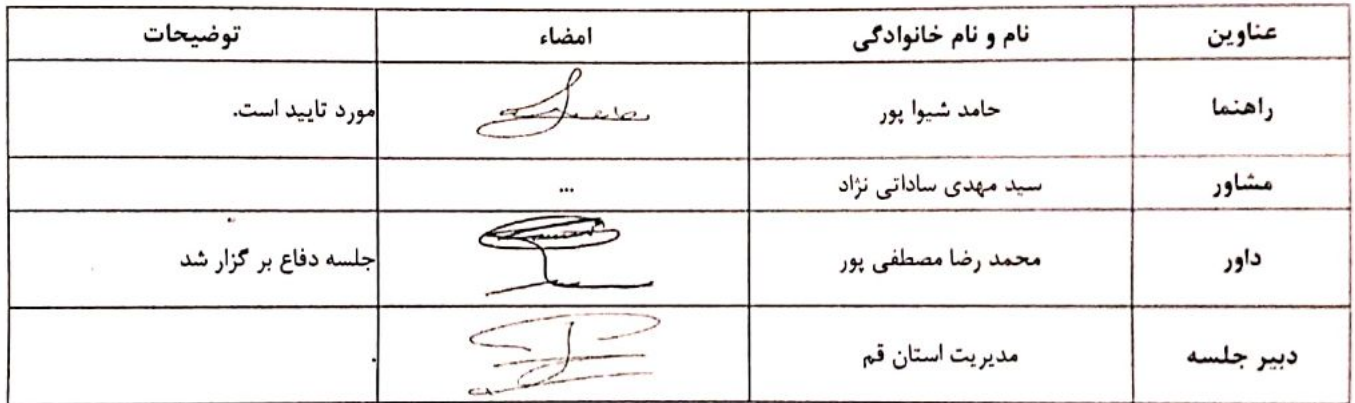 عناوین نام و نام خانوادگی امضاء توضیحات
راهنما حامد شیوا پور مورد تایید است.
مشاور سید مهدی ساداتی نژاد ...
داور محمد رضا مصطفی پور جلسه دفاع بر گزار شد
دبیر جلسه مدیریت استان قم .